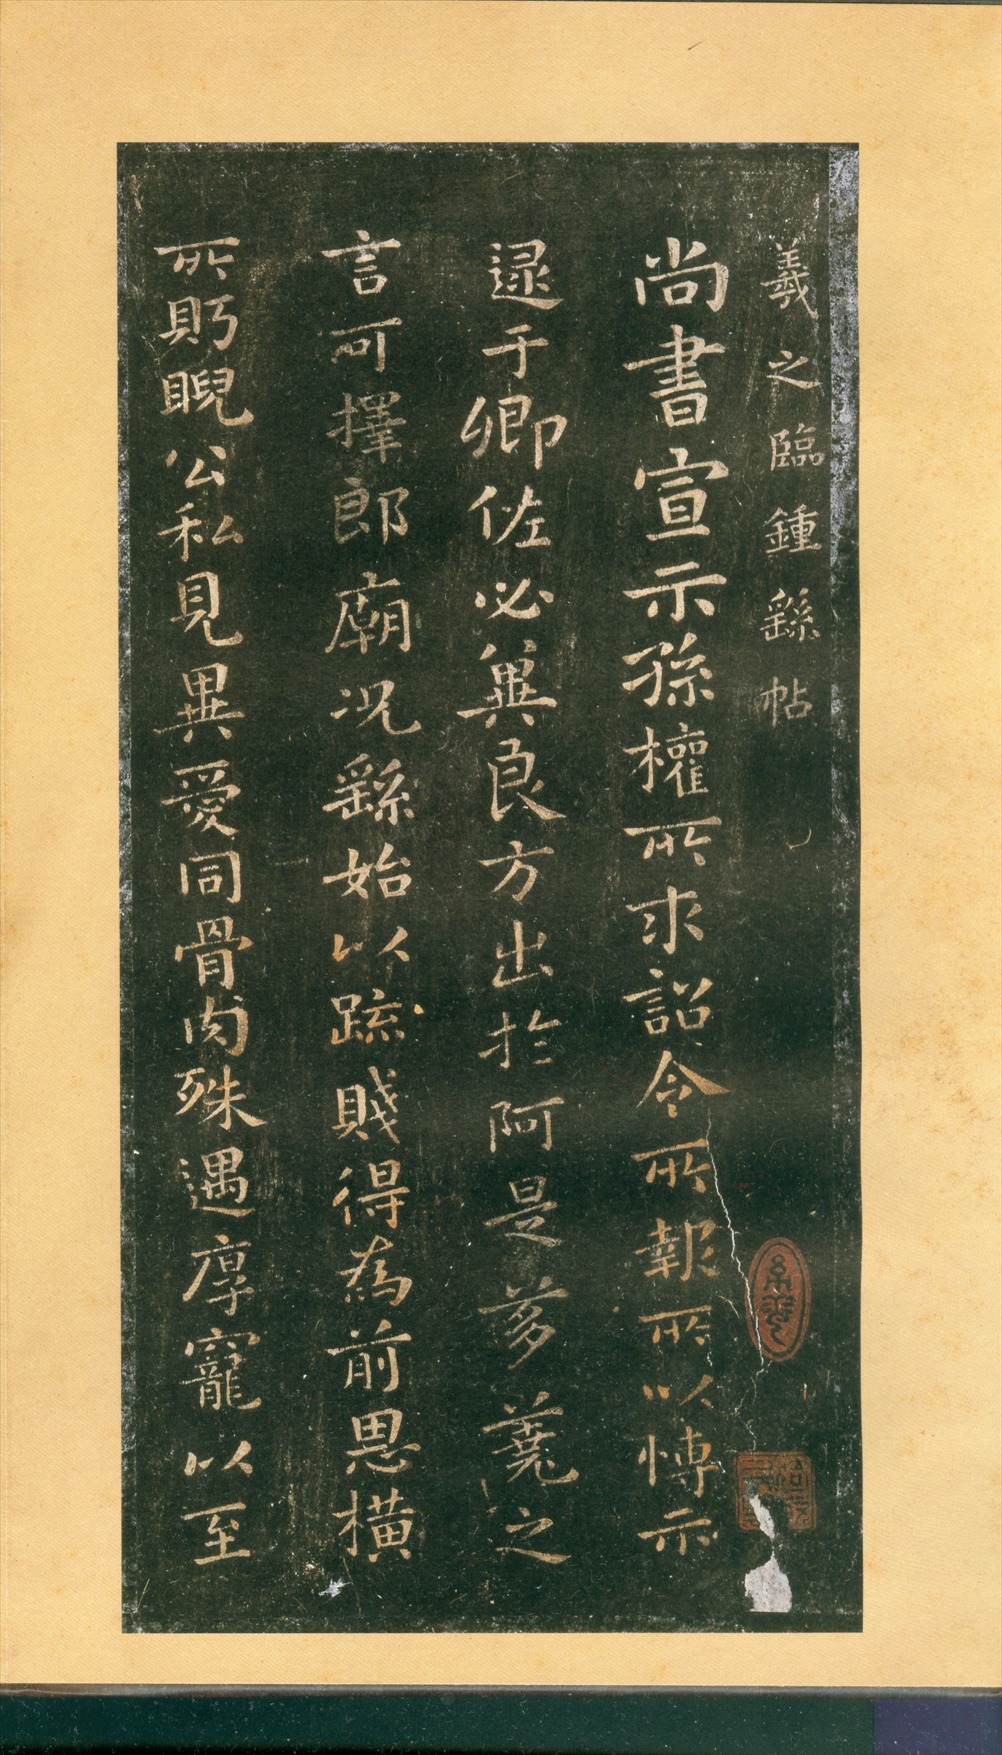 羲之臨鍾繇帖
尚書宣示孫權所求詔令所報所以博示
逮于卿佐必冀良方出於阿是芻蕘之
言可擇郎廟況繇始以疏賤得為前恩橫
所眄睨公私見異愛同骨肉殊遇厚寵以至